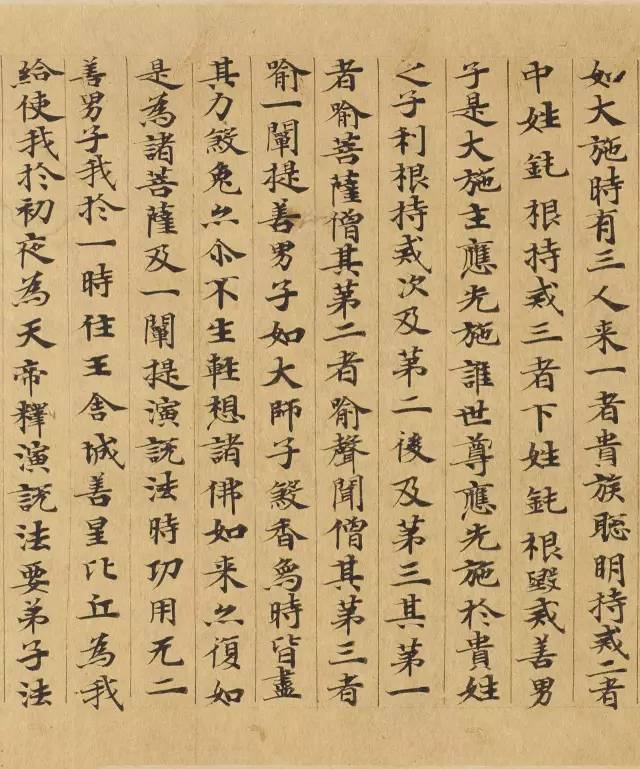 如大施時有三人来一者貴族聦明持戒二者
中姓鈍根持戒三者下姓鈍根毀戒善男
子是大施主應先施誰世尊應先施於貴姓
之子利根持戒次及第二後及第三其第一
者喻菩薩僧其第二者喻聲聞僧其第三者
喻一闡提善男子如大師子煞香為時皆盡
其力煞兔亦尒不生軽想諸佛如来亦復如
是為諸菩薩及一闡提演說法時功用无二
善男子我於一時住王舍城善星比丘為我
給使我於初夜為天帝釋演說法要弟子法